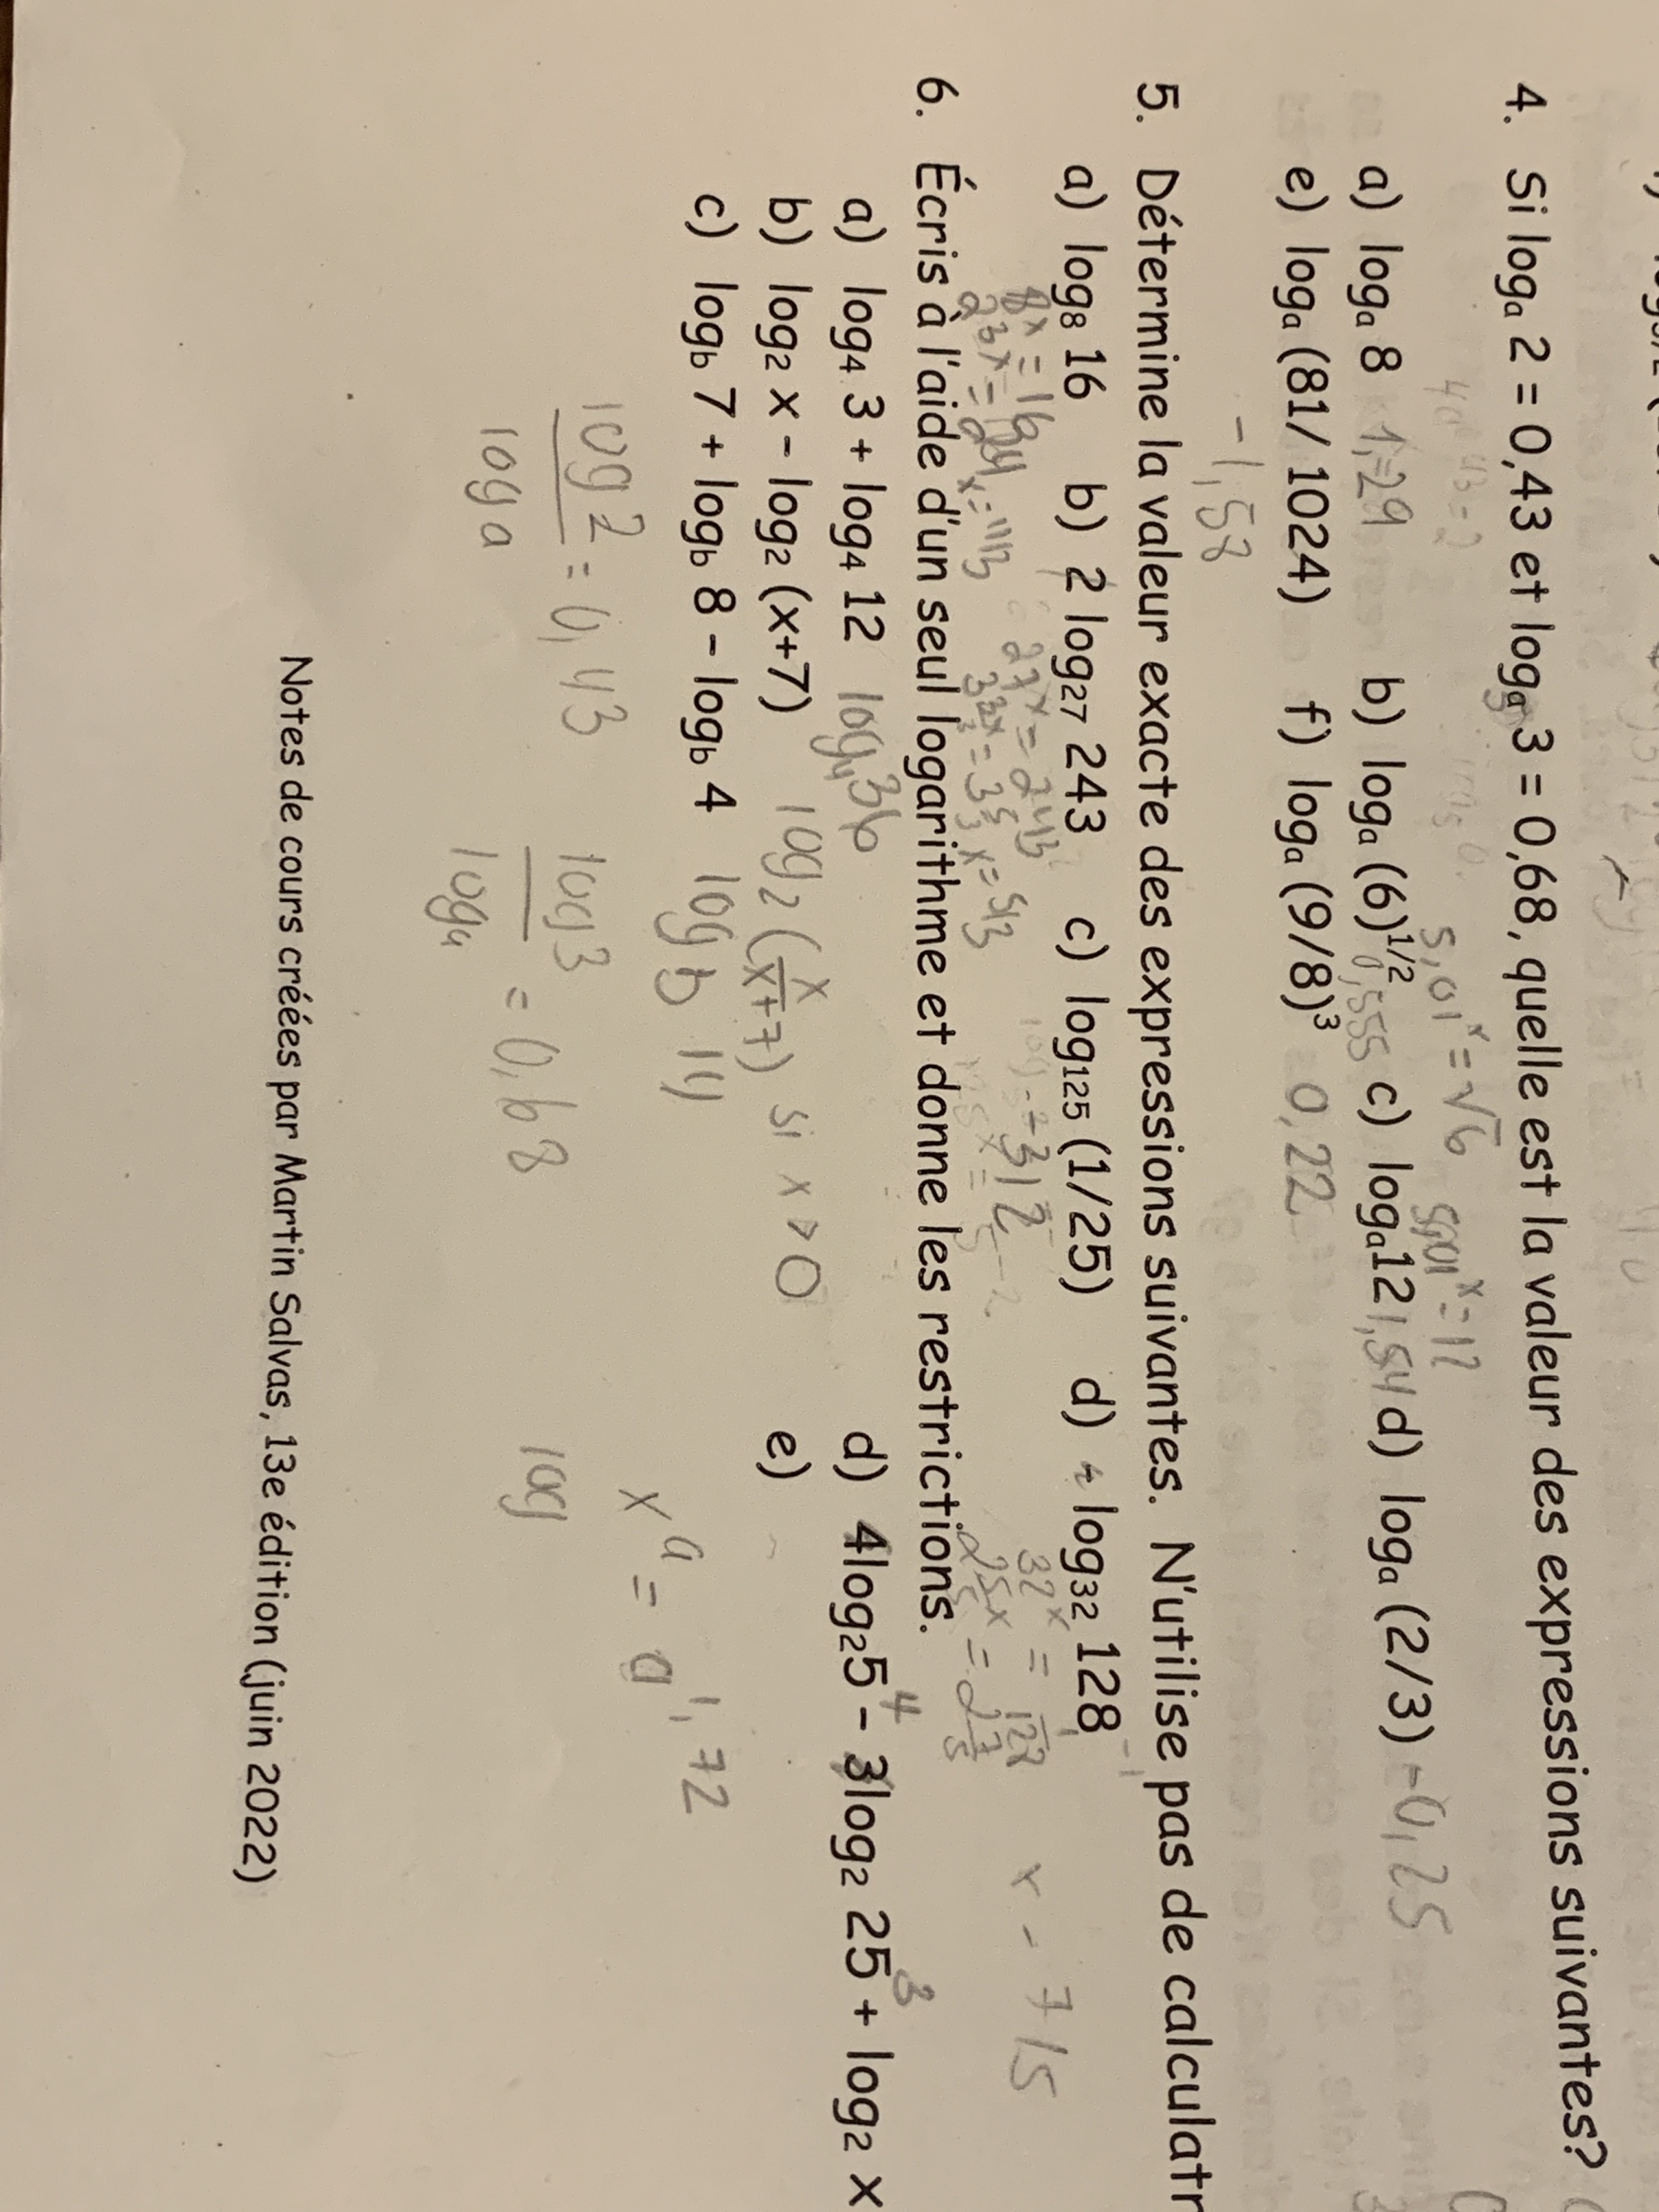 4. Si logₐ 2 = 0,43 et logₐ 3 = 0,68, quelle est la valeur des expressions suivantes?
5,01ˣ = √6 5,01ˣ = 12
a) logₐ 8 1,29 b) logₐ (6)^1/2 0,555 c) logₐ12 1,54 d) logₐ (2/3) -0,25
e) logₐ (81/ 1024) f) logₐ (9/8)³ 0,22
-1,58
5. Détermine la valeur exacte des expressions suivantes. N'utilise pas de calculatr
a) log₈ 16 b) 2 log₂₇ 243 c) log₁₂₅ (1/25) d) log₃₂ 128
8ˣ = 16 27ˣ = 243 32ˣ = 128 x - 7/5
x = 4/3 x = 5/3
6. Écris à l'aide d'un seul logarithme et donne les restrictions.
a) log₄ 3 + log₄ 12 log₄36 d) 4log₂5⁴ - 3log₂ 25³ + log₂ x
b) log₂ x - log₂ (x+7) log₂ (x/x+7) si x > 0 e)
c) log_b 7 + log_b 8 - log_b 4 log_b 14
log 2 / log a = 0,43 log 3 / log a = 0,68 xᵃ = a^1,72
log
Notes de cours créées par Martin Salvas, 13e édition (juin 2022)